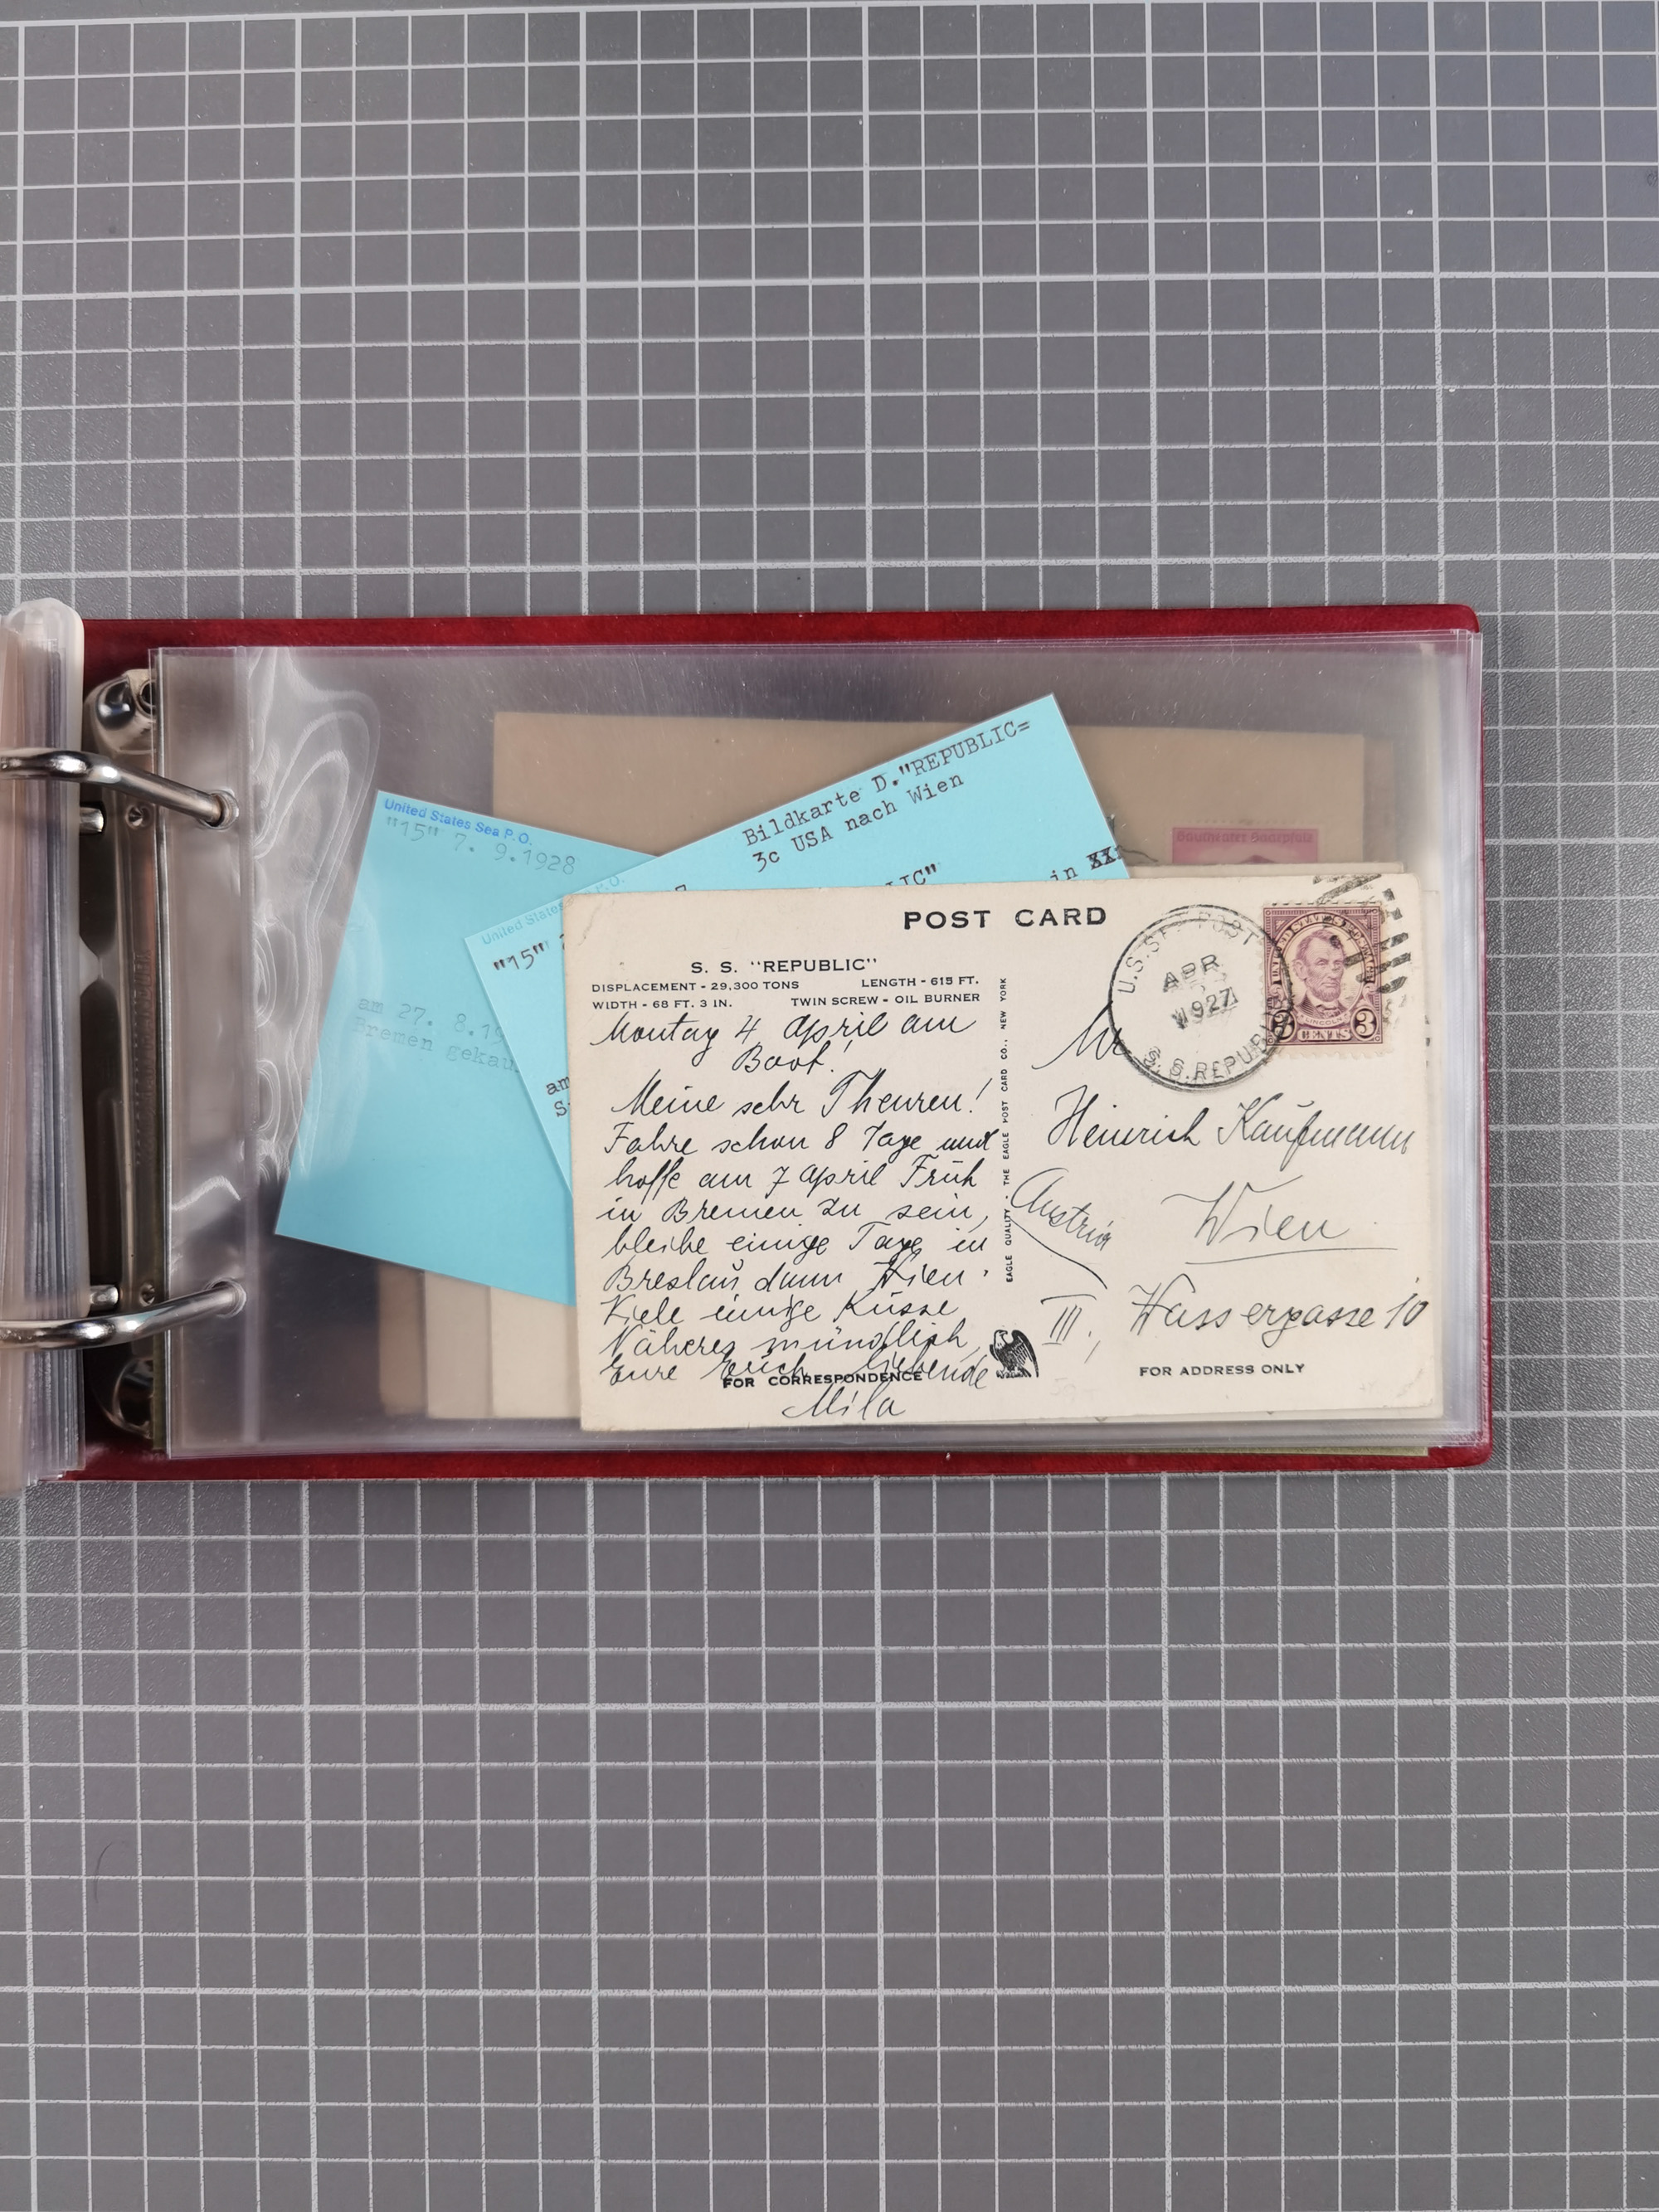 United States Sea P.O.
"15" 7. 9.1928
am 27. 8.19
Bremen gekau
United States P.O.
"15"
am
Bildkarte D."REPUBLIC=
3c USA nach Wien
LIC"
in XX
Southeater Saarpfalz
POST CARD
S. S. "REPUBLIC"
DISPLACEMENT - 29,300 TONS LENGTH - 615 FT.
WIDTH - 68 FT. 3 IN. TWIN SCREW - OIL BURNER
Montag 4 April am
Boot!
Meine sehr Theuren!
Fahre schon 8 Tage und
hoffe am 7 April Früh
in Bremen zu sein,
bleibe einige Tage in
Breslau dann Wien.
Viele einige Küsse
Näheres mündlich,
Eure Euch liebende
FOR CORRESPONDENCE
Mila
EAGLE QUALITY - THE EAGLE POST CARD CO., NEW YORK
U.S. SEA POST
APR
1927
S.S. REPUBLIC
LINCOLN
3 CENTS 3
Mr
Heinrich Kaufmann
Austria
Wien
III., Wassergasse 10
FOR ADDRESS ONLY